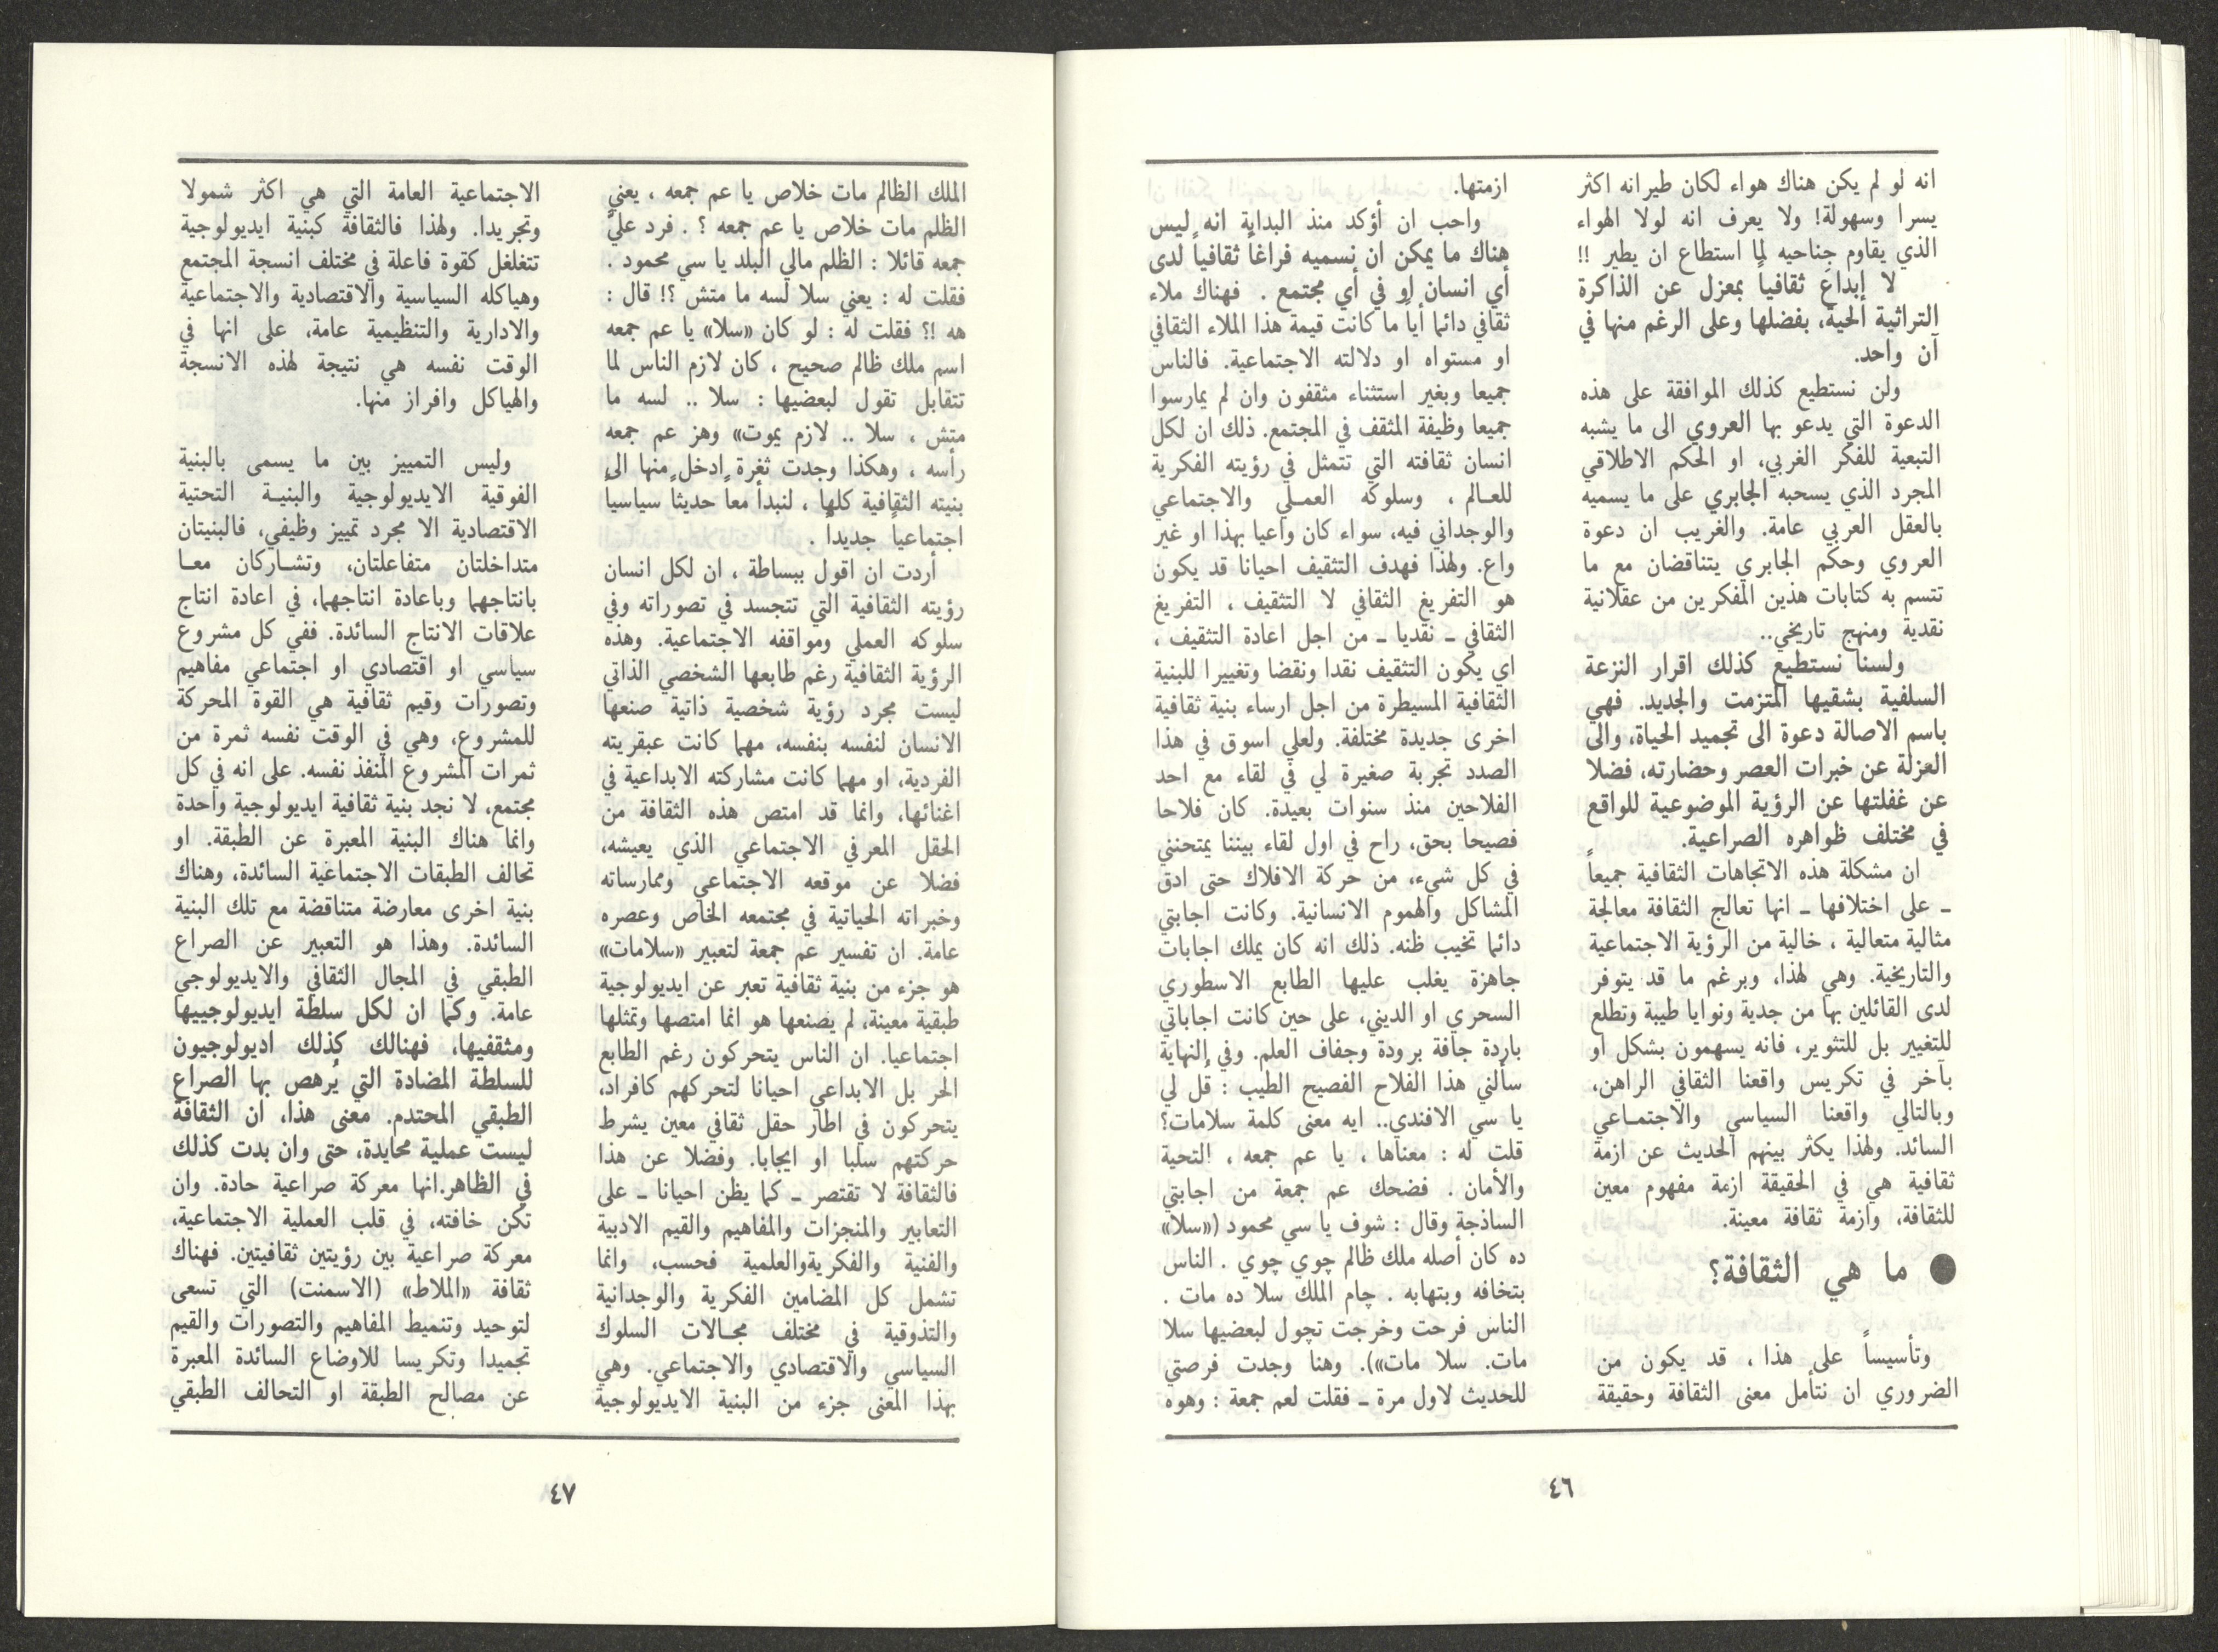 انه لو لم يكن هناك هواء لكان طيرانه اكثر
يسرا وسهولة! ولا يعرف انه لولا الهواء
الذي يقاوم جناحيه لما استطاع ان يطير !!
لا إبداعَ ثقافياً بمعزل عن الذاكرة
التراثية الحية، بفضلها وعلى الرغم منها في
آن واحد.
ولن نستطيع كذلك الموافقة على هذه
الدعوة التي يدعو بها العروي الى ما يشبه
التبعية للفكر الغربي، او الحكم الاطلاقي
المجرد الذي يسحبه الجابري على ما يسميه
بالعقل العربي عامة. والغريب ان دعوة
العروي وحكم الجابري يتناقضان مع ما
تتسم به كتابات هذين المفكرين من عقلانية
نقدية ومنهج تاريخي..
ولسنا نستطيع كذلك اقرار النزعة
السلفية بشقيها المتزمت والجديد. فهي
باسم الاصالة دعوة الى تجميد الحياة، والى
العزلة عن خبرات العصر وحضارته، فضلا
عن غفلتها عن الرؤية الموضوعية للواقع
في مختلف ظواهره الصراعية.
ان مشكلة هذه الاتجاهات الثقافية جميعاً
ـ على اختلافها ـ انها تعالج الثقافة معالجة
مثالية متعالية ، خالية من الرؤية الاجتماعية
والتاريخية. وهي لهذا، وبرغم ما قد يتوفر
لدى القائلين بها من جدية ونوايا طيبة وتطلع
للتغيير بل للتثوير، فانه يسهمون بشكل او
بآخر في تكريس واقعنا الثقافي الراهن،
وبالتالي واقعنا السياسي والاجتماعي
السائد. ولهذا يكثر بينهم الحديث عن ازمة
ثقافية هي في الحقيقة ازمة مفهوم معين
للثقافة، وازمة ثقافة معينة.
● ما هي الثقافة؟
وتأسيساً على هذا ، قد يكون من
الضروري ان نتأمل معنى الثقافة وحقيقة
ازمتها.
واحب ان أؤكد منذ البداية انه ليس
هناك ما يمكن ان نسميه فراغاً ثقافياً لدى
أي انسان او في أي مجتمع . فهناك ملاء
ثقافي دائما أياً ما كانت قيمة هذا الملاء الثقافي
او مستواه او دلالته الاجتماعية. فالناس
جميعا وبغير استثناء مثقفون وان لم يمارسوا
جميعا وظيفة المثقف في المجتمع. ذلك ان لكل
انسان ثقافته التي تتمثل في رؤيته الفكرية
للعالم ، وسلوكه العملي والاجتماعي
والوجداني فيه، سواء كان واعيا بهذا او غير
واع. ولهذا فهدف التثقيف احيانا قد يكون
هو التفريغ الثقافي لا التثقيف ، التفريغ
الثقافي ـ نقديا ـ من اجل اعادة التثقيف ،
اي يكون التثقيف نقدا ونقضا وتغييرا للبنية
الثقافية المسيطرة من اجل ارساء بنية ثقافية
اخرى جديدة مختلفة. ولعلي اسوق في هذا
الصدد تجربة صغيرة لي في لقاء مع احد
الفلاحين منذ سنوات بعيدة. كان فلاحا
فصيحا بحق، راح في اول لقاء بيننا يمتحنني
في كل شيء، من حركة الافلاك حتى ادق
المشاكل والهموم الانسانية. وكانت اجابتي
دائما تخيب ظنه. ذلك انه كان يملك اجابات
جاهزة يغلب عليها الطابع الاسطوري
السحري او الديني، على حين كانت اجاباتي
باردة جافة برودة وجفاف العلم. وفي النهاية
سألني هذا الفلاح الفصيح الطيب : قُل لي
يا سي الافندي.. ايه معنى كلمة سلامات؟
قلت له : معناها ، يا عم جمعه ، التحية
والأمان . فضحك عم جمعة من اجابتي
الساذجة وقال : شوف يا سي محمود («سلا»
ده كان أصله ملك ظالم چوي چوي . الناس
بتخافه وبتهابه . چام الملك سلا ده مات .
الناس فرحت وخرجت تچول لبعضيها سلا
مات. سلا مات»). وهنا وجدت فرصتي
للحديث لاول مرة ـ فقلت لعم جمعة : وهوه
٤٦
الملك الظالم مات خلاص يا عم جمعه ، يعني
الظلم مات خلاص يا عم جمعه ؟ . فرد عليَّ
جمعه قائلا : الظلم مالي البلد يا سي محمود .
فقلت له : يعني سلا لسه ما متش ؟! قال :
هه !؟ فقلت له : لو كان «سلا» يا عم جمعه
اسم ملك ظالم صحيح ، كان لازم الناس لما
تتقابل تقول لبعضيها : سلا .. لسه ما
متش ، سلا .. لازم يموت» وهز عم جمعه
رأسه ، وهكذا وجدت ثغرة ادخل منها الى
بنيته الثقافية كلها ، لنبدأ معاً حديثاً سياسياً
اجتماعياً جديداً .
أردت ان اقول ببساطة ، ان لكل انسان
رؤيته الثقافية التي تتجسد في تصوراته وفي
سلوكه العملي ومواقفه الاجتماعية. وهذه
الرؤية الثقافية رغم طابعها الشخصي الذاتي
ليست مجرد رؤية شخصية ذاتية صنعها
الانسان لنفسه بنفسه، مهما كانت عبقريته
الفردية، او مهما كانت مشاركته الابداعية في
اغنائها، وانما قد امتص هذه الثقافة من
الحقل المعرفي الاجتماعي الذي يعيشه،
فضلا عن موقعه الاجتماعي وممارساته
وخبراته الحياتية في مجتمعه الخاص وعصره
عامة. ان تفسير عم جمعة لتعبير «سلامات»
هو جزء من بنية ثقافية تعبر عن ايديولوجية
طبقية معينة، لم يصنعها هو انما امتصها وتمثلها
اجتماعيا. ان الناس يتحركون رغم الطابع
الحر بل الابداعي احيانا لتحركهم كافراد،
يتحركون في اطار حقل ثقافي معين يشرط
حركتهم سلبا او ايجابا. وفضلا عن هذا
فالثقافة لا تقتصر ـ كما يظن احيانا ـ على
التعابير والمنجزات والمفاهيم والقيم الادبية
والفنية والفكريةوالعلمية فحسب، وانما
تشمل كل المضامين الفكرية والوجدانية
والتذوقية في مختلف مجالات السلوك
السياسي والاقتصادي والاجتماعي. وهي
بهذا المعنى جزء من البنية الايديولوجية
الاجتماعية العامة التي هي اكثر شمولا
وتجريدا. ولهذا فالثقافة كبنية ايديولوجية
تتغلغل كقوة فاعلة في مختلف انسجة المجتمع
وهياكله السياسية والاقتصادية والاجتماعية
والادارية والتنظيمية عامة، على انها في
الوقت نفسه هي نتيجة لهذه الانسجة
والهياكل وافراز منها.
وليس التمييز بين ما يسمى بالبنية
الفوقية الايديولوجية والبنية التحتية
الاقتصادية الا مجرد تمييز وظيفي، فالبنيتان
متداخلتان متفاعلتان، وتشاركان معا
بانتاجهما وباعادة انتاجهما، في اعادة انتاج
علاقات الانتاج السائدة. ففي كل مشروع
سياسي او اقتصادي او اجتماعي مفاهيم
وتصورات وقيم ثقافية هي القوة المحركة
للمشروع، وهي في الوقت نفسه ثمرة من
ثمرات المشروع المنفذ نفسه. على انه في كل
مجتمع، لا نجد بنية ثقافية ايديولوجية واحدة
وانما هناك البنية المعبرة عن الطبقة. او
تحالف الطبقات الاجتماعية السائدة، وهناك
بنية اخرى معارضة متناقضة مع تلك البنية
السائدة. وهذا هو التعبير عن الصراع
الطبقي في المجال الثقافي والايديولوجي
عامة. وكما ان لكل سلطة ايديولوجييها
ومثقفيها، فهنالك كذلك اديولوجيون
للسلطة المضادة التي يُرهص بها الصراع
الطبقي المحتدم. معنى هذا، ان الثقافة
ليست عملية محايدة، حتى وان بدت كذلك
في الظاهر.انها معركة صراعية حادة. وان
تكن خافته، في قلب العملية الاجتماعية،
معركة صراعية بين رؤيتين ثقافيتين. فهناك
ثقافة «الملاط» (الاسمنت) التي تسعى
لتوحيد وتنميط المفاهيم والتصورات والقيم
تجميدا وتكريسا للاوضاع السائدة المعبرة
عن مصالح الطبقة او التحالف الطبقي
٤٧